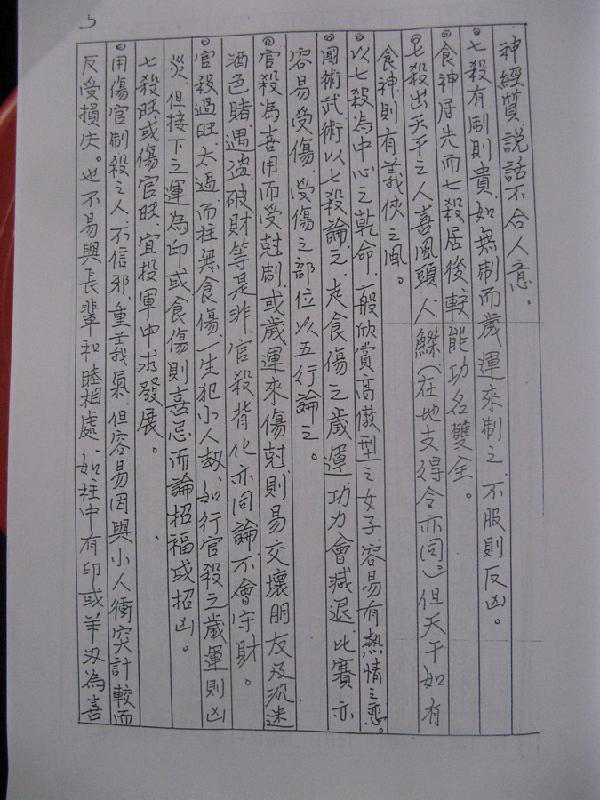 神經質說話不合人意。
◎七殺有制則貴,如無制而歲運來制之,不服則反凶。
◎食神居先而七殺居後,較能功名雙全。
◎七殺出天干之人喜風頭,人鰥(在地支得令亦同),但天干如有
食神則有義俠之風。
◎以七殺為中心之乾命,一般欣賞高傲型之女子,容易有熱情之戀。
◎國術武術以七殺論之,走食傷之歲運,功力會減退,比賽亦
容易受傷,受傷之部位以五行論之。
◎官殺為喜用而受尅制,或歲運來傷尅,則易交壞朋友及沉迷
酒色賭遇盜破財等是非,官殺背化亦同論,不會守財。
◎官殺過旺,太過,而柱無食傷一生犯小人故,如行官殺之歲運則凶
災,但接下之運為印或食傷則喜忌而論招福或招凶。
七殺旺或傷官旺,宜投軍中求發展。
◎用傷官制殺之人,不信邪,重義氣,但容易因與小人衝突計較而
反受損失。也不易與長輩和睦相處,如柱中有印或羊刃為喜
5